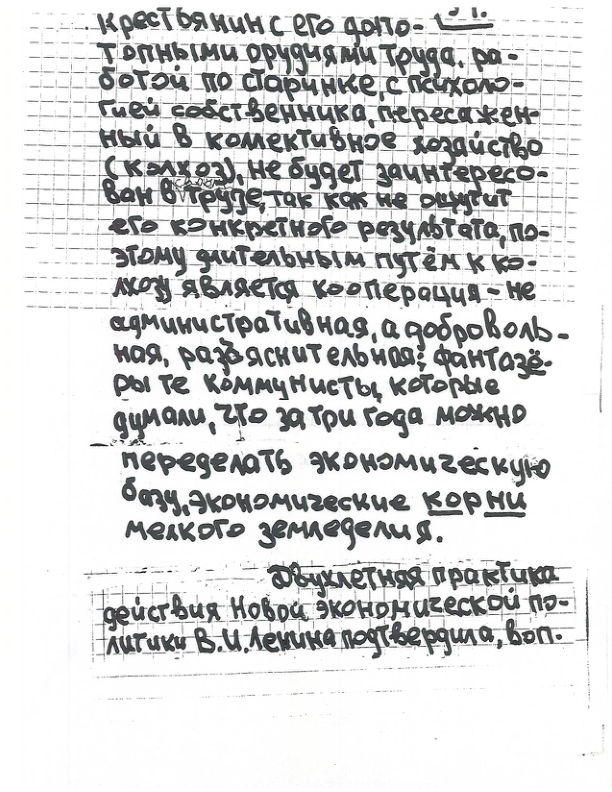 Крестьянин с его допо-
топными орудиями труда, ра-
ботой по старинке, с психоло-
гией собственника, пересажен-
ный в коллективное хозяйство
(колхоз), не будет заинтересо-
ван в труде, так как не ощутит
его конкретного результата, по-
этому длительным путём к ко-
лхозу является кооперация - не
административная, а доброволь-
ная, разъяснительная; фантазё-
ры те коммунисты, которые
думали, что за три года можно
переделать экономическую
базу, экономические корни
мелкого земледелия.
Двухлетняя практика
действия Новой экономической по-
литики В.И.Ленина подтвердила, воп.